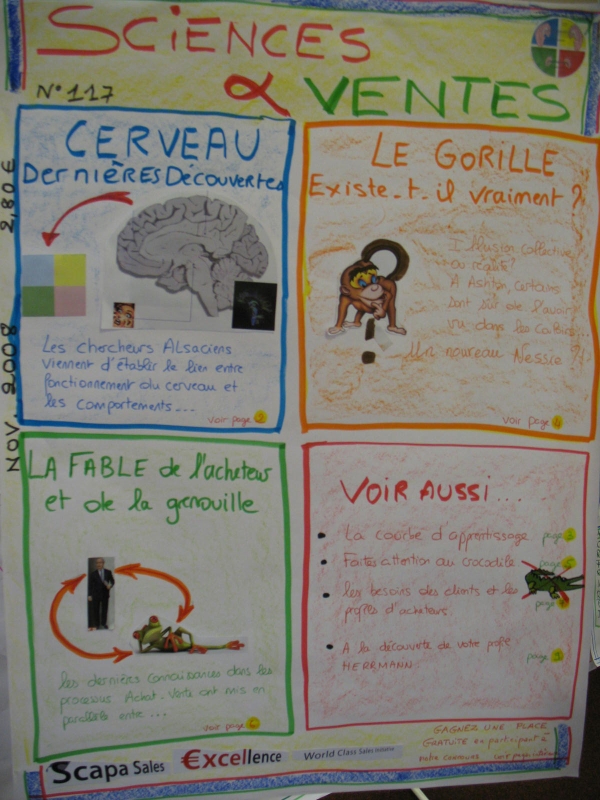 SCIENCES
& VENTES
N° 117
2,80 €
NOV. 2008
CERVEAU
Dernières Découvertes
Les chercheurs Alsaciens
viennent d'établir le lien entre
fonctionnement du cerveau et
les comportements...
voir page 2
LE GORILLE
Existe-t-il vraiment ?
Illusion collective
ou réalité?
A Ashton, certains
sont sûr de l'avoir
vu dans les cabines...
Un nouveau Nessie ?!
voir page 4
LA FABLE de l'acheteur
et de la grenouille
les dernières connaissances dans les
processus Achat-Vente ont mis en
parallèle entre ...
voir page 6
VOIR AUSSI...
La courbe d'apprentissage page
Faites attention au crocodile page
les besoins des clients et les
profils d'acheteurs page
A la découverte de votre profil
HERRMANN page 3
Scapa Sales €xcellence World Class Sales Initiative
GAGNEZ UNE PLACE
GRATUITE en participant à
notre concours voir page